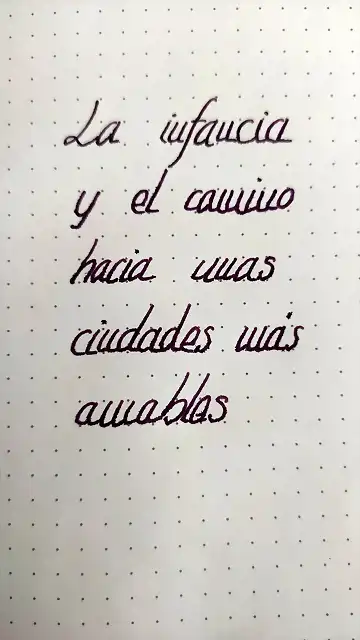 La infancia
y el camino
hacia unas
ciudades más
amables